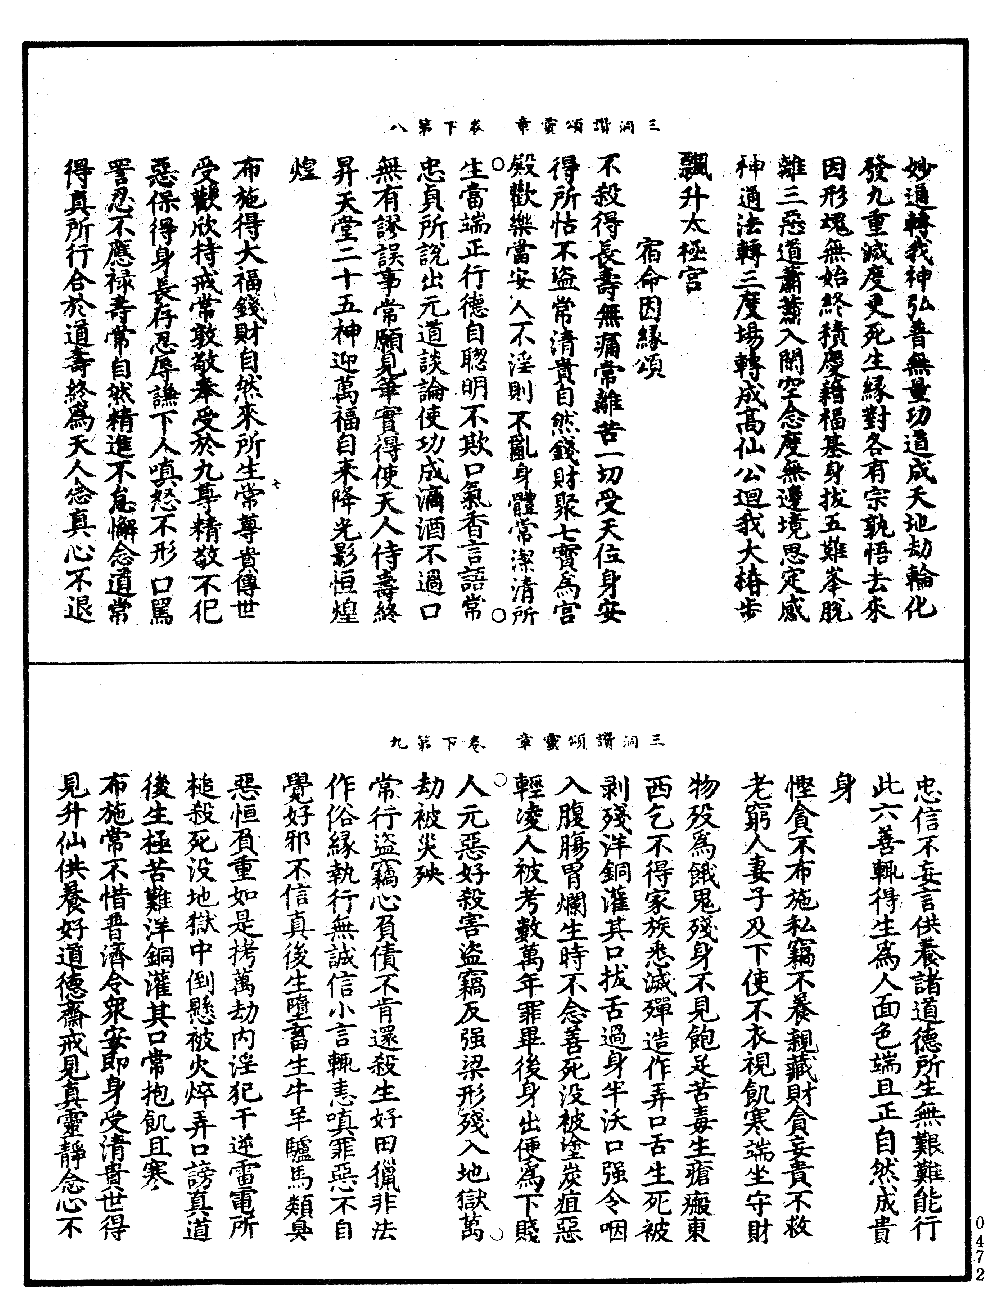 三洞讚頌靈章　卷下第八
妙通轉我神弘普無量功道成天地劫輪化
發九重滅度更死生緣對各有宗孰悟去來
因形魂無始終積慶藉福基身拔五難峯脫
離三惡道蕭蕭入閑空念度無邊境思定感
神通法轉三度場轉成高仙公迴我大椿步
飄升太極宮
宿命因緣頌
不殺得長壽無病常離苦一切受天位身安
得所怙不盜常清貴自然錢財聚七寶為宮
殿歡樂當安人不淫則不亂身體常潔清所
生當端正行德自聰明不欺口氣香言語常
忠貞所說出元道談論使功成滴酒不過口
無有謬誤事常願見華實得使天人侍壽終
昇天堂二十五神迎萬福自来降光影恒煌
煌
布施得大福錢財自然来所生常尊貴傳世
受歡欣持戒常敦敬奉受於九尊精敬不犯
惡保得身長存忍辱謙下人嗔怒不形口罵
詈忍不應祿壽常自然精進不怠懈念道常
得真所行合於道壽終為天人念真心不退
七
三洞讚頌靈章　卷下第九
忠信不妄言供養諸道德所生無艱難能行
此六善輒得生為人面色端且正自然成貴
身
慳貪不布施私竊不養親藏財貪妄責不救
老窮人妻子及下使不衣視飢寒端坐守財
物歿為餓鬼殘身不見飽足苦毒生瘡瘢東
西乞不得家族悉滅殫造作弄口舌生死被
剥殘洋銅灌其口拔舌過身半沃口强令咽
入腹腸胃爛生時不念善死没被塗炭疽惡
輕凌人被考數萬年罪畢後身出便為下賤
人元惡好殺害盜竊及强梁形殘入地獄萬
劫被災殃
常行盜竊心負債不肯還殺生好田獵非法
作俗緣執行無誠信小言輒恚嗔罪惡不自
覺好邪不信真後生墮畜生牛羊驢馬類臭
惡恒負重如是拷萬劫內淫犯干逆雷電所
槌殺死没地獄中倒懸被火焠弄口謗真道
後生極苦難洋銅灌其口常抱飢且寒
布施常不惜普濟令衆安即身受清貴世得
見升仙供養好道德齋戒見真靈靜念心不
0472